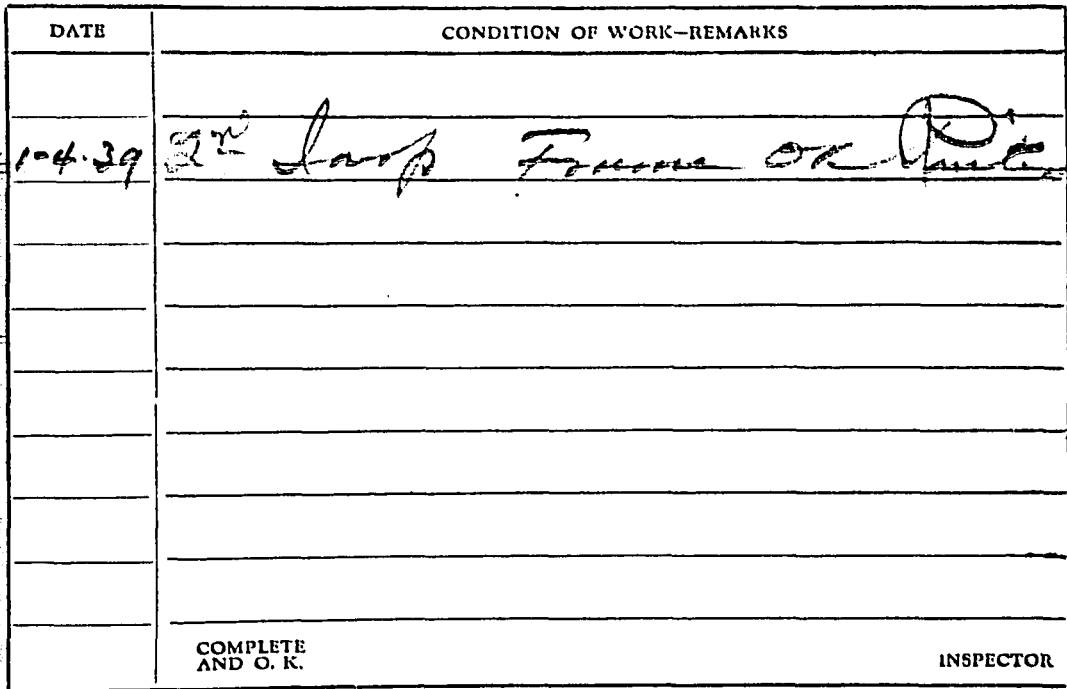 DATE CONDITION OF WORK—REMARKS
1-4-39 2nd Insp Frame OK
COMPLETE
AND O. K. INSPECTOR